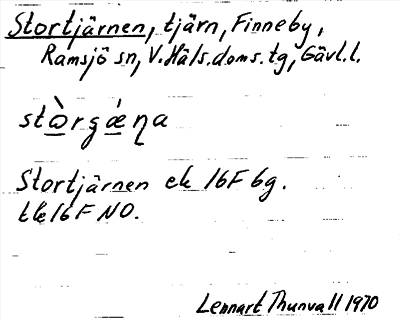 Stortjärnen, tjärn, Finneby,
Ramsjö sn, V. Häls. doms. tg, Gävl. l.
stὼrgǽɳa
Stortjärnen ek 16F 6g.
tk 16F NO.
Lennart Thunvall 1970